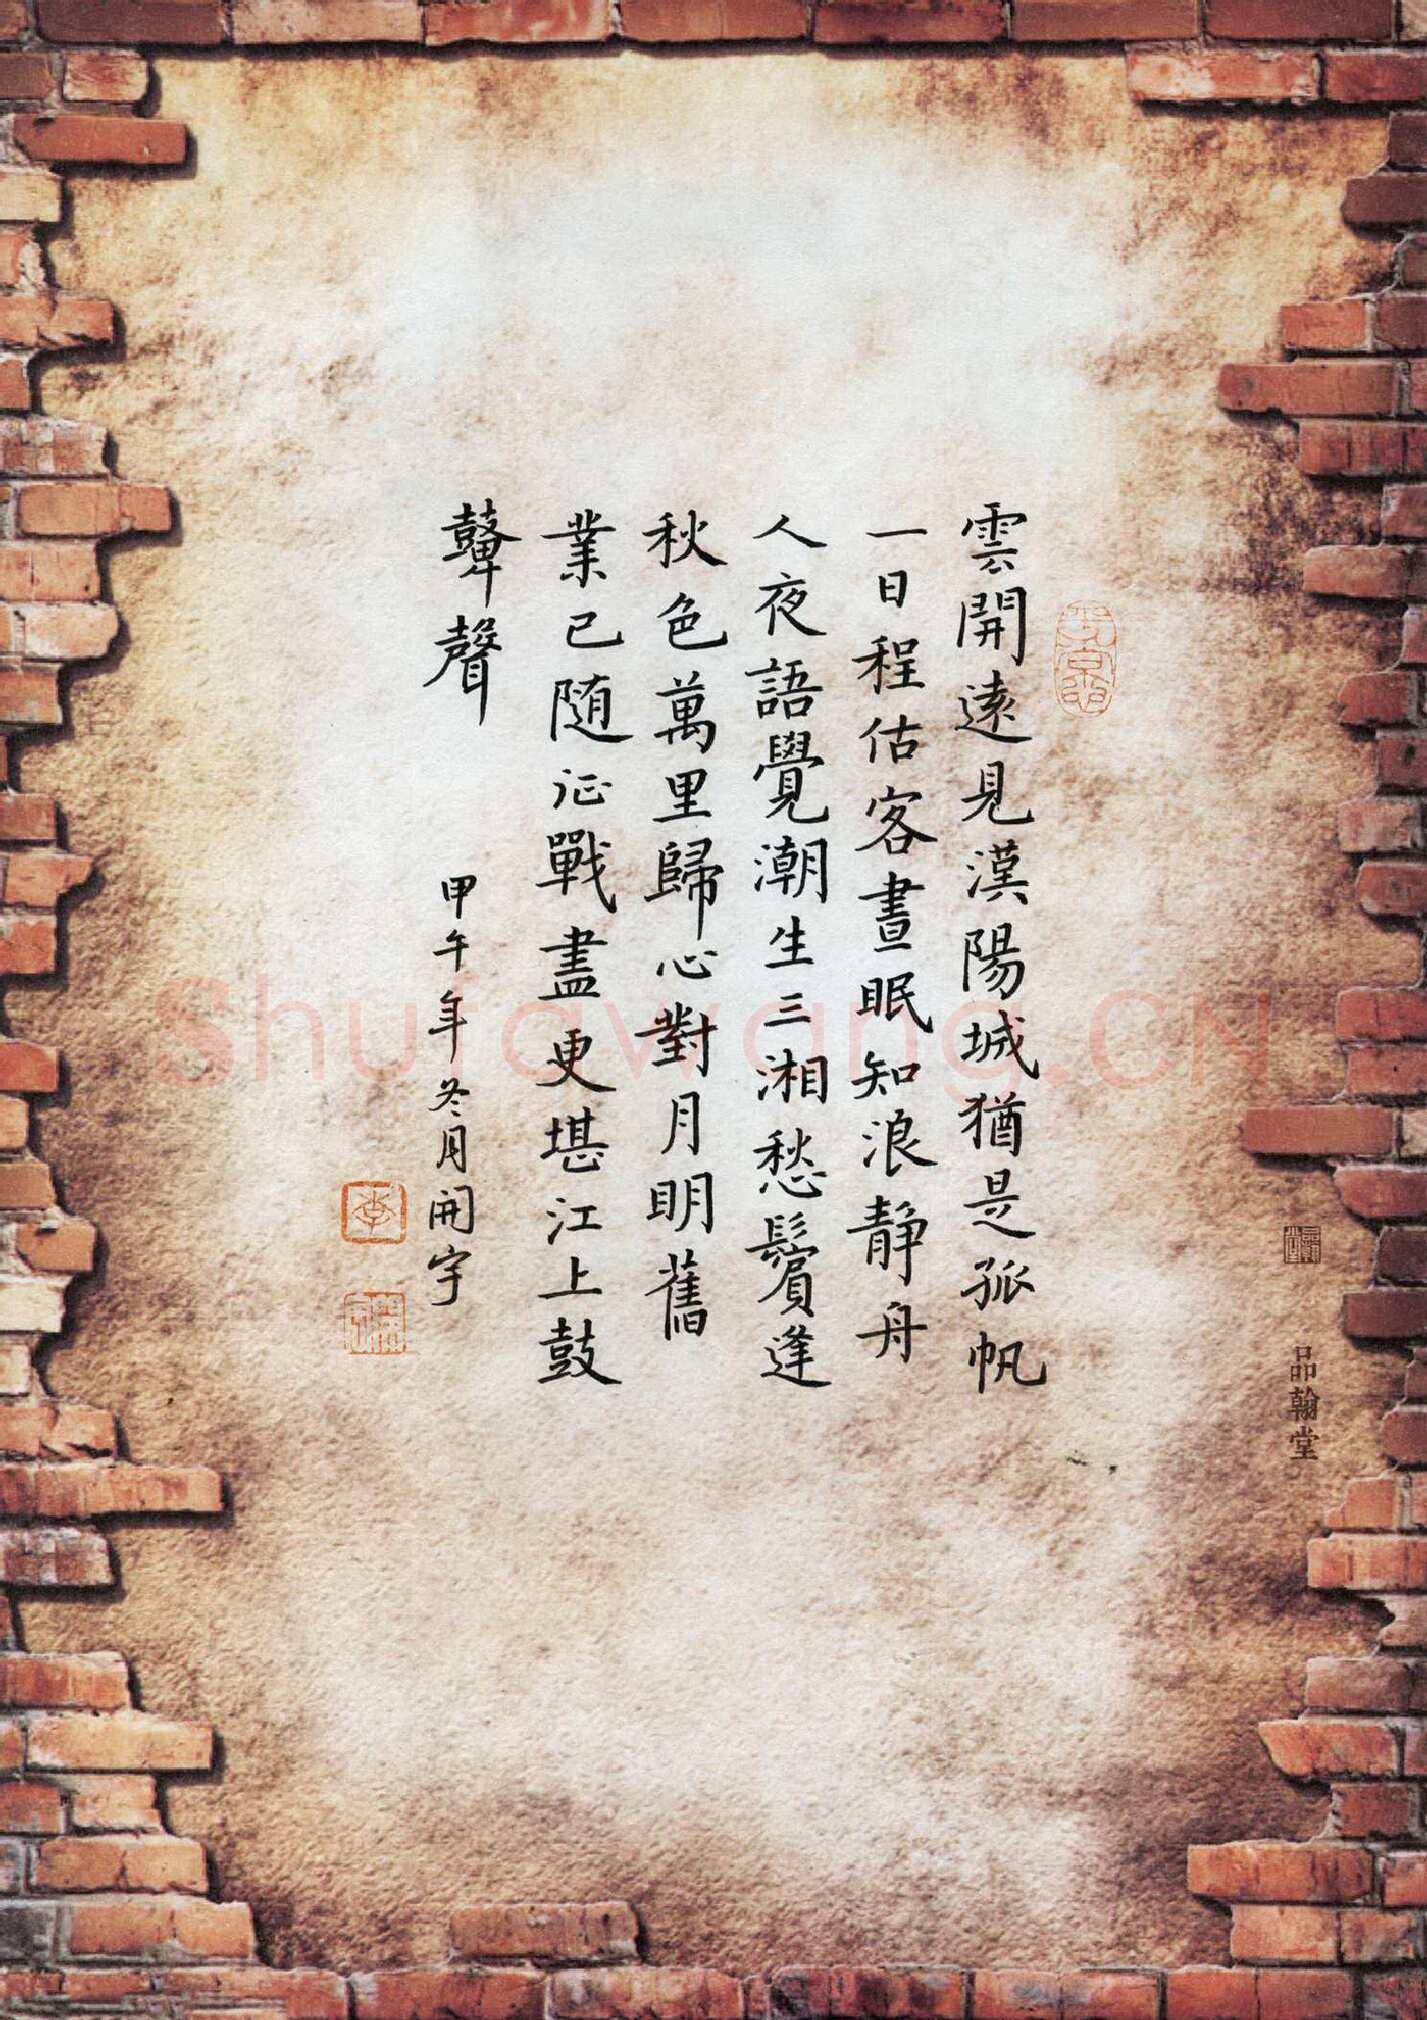 雲開遠見漢陽城猶是孤帆
一日程估客晝眠知浪静舟
人夜語覺潮生三湘愁鬢逢
秋色萬里歸心對月明舊
業已随征戰盡更堪江上鼓
鼙聲
甲午年冬月開宇
李
品翰堂
Shufawang.CN